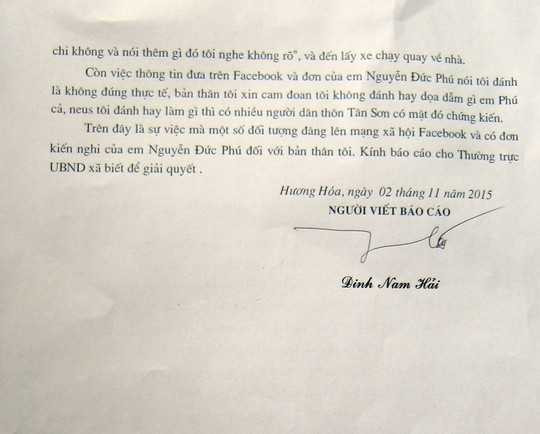 chi không và nói thêm gì đó tôi nghe không rõ", và đến lấy xe chạy quay về nhà.
Còn việc thông tin đưa trên Facebook và đơn của em Nguyễn Đức Phú nói tôi đánh
là không đúng thực tế, bản thân tôi xin cam đoan tôi không đánh hay dọa dẫm gì em Phú
cả, neus tôi đánh hay làm gì thì có nhiều người dân thôn Tân Sơn có mặt đó chứng kiến.
Trên đây là sự việc mà một số đối tượng đăng lên mạng xã hội Facebook và có đơn
kiến nghi của em Nguyễn Đức Phú đối với bản thân tôi. Kính báo cáo cho Thường trực
UBND xã biết để giải quyết .
Hương Hóa, ngày 02 tháng 11 năm 2015
NGƯỜI VIẾT BÁO CÁO
Đinh Nam Hải